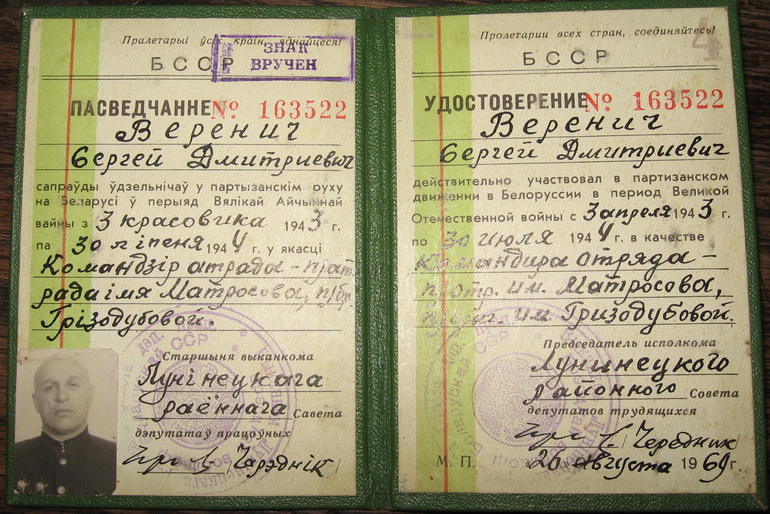 Пралетарыі ўсіх краін, яднайцеся!
БССР
ЗНАК
ВРУЧЕН
ПАСВЕДЧАННЕ № 163522
Веренич
Сергей Дмитриевич
сапраўды ўдзельнічаў у партызанскім руху
на Беларусі ў перыяд Вялікай Айчыннай
вайны з 3 красовика 1943 г.
па 30 ліпеня 1944 г. у якасці
Командзір атрада - п/атр
рада імя Матросова, п/бр.
Грізодубовой.
Старшыня выканкома
Лунінецкага
раённага Савета
дэпутатаў працоўных
Чарэднік
Пролетарии всех стран, соединяйтесь!
БССР
4
УДОСТОВЕРЕНИЕ № 163522
Веренич
Сергей Дмитриевич
действительно участвовал в партизанском
движении в Белоруссии в период Великой
Отечественной войны с 3 апреля 1943 г.
по 30 июля 1944 г. в качестве
Командира отряда -
п/отр. им. Матросова,
им. Гризодубовой.
Председатель исполкома
Лунинецкого
районного Совета
депутатов трудящихся
Чередник
М. П. 26 августа 1969 г.